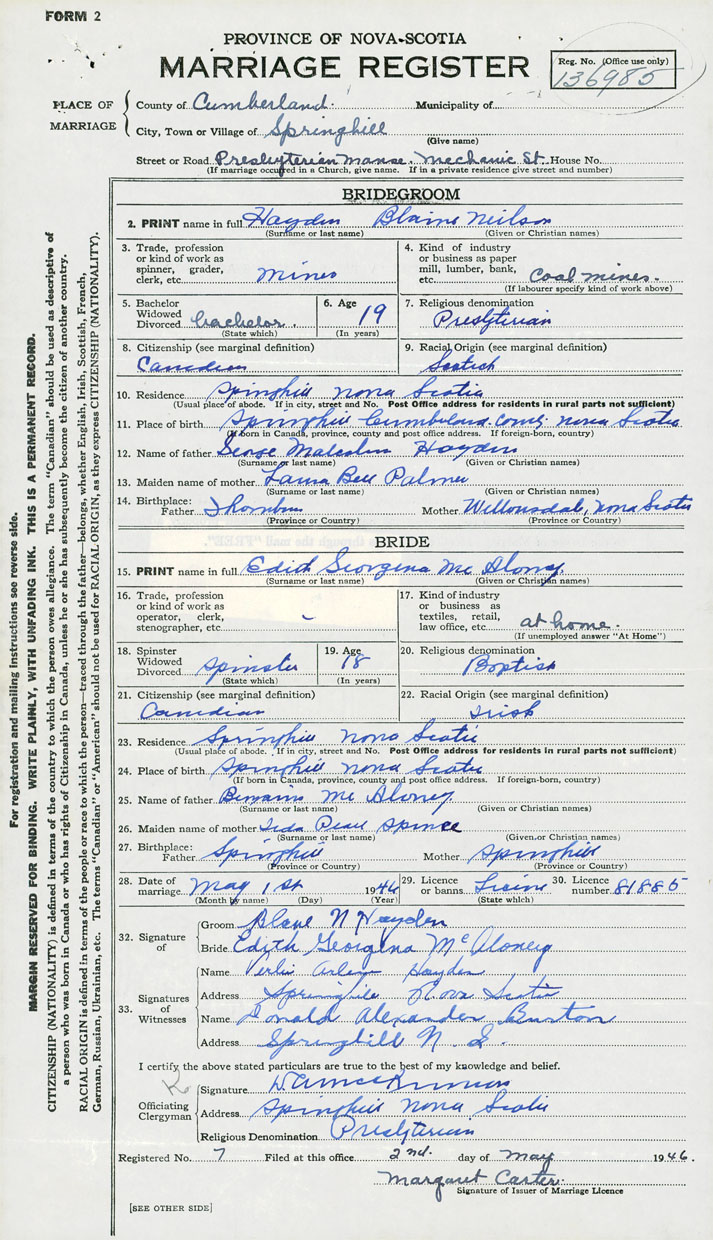 FORM 2
PROVINCE OF NOVA-SCOTIA
MARRIAGE REGISTER
Reg. No. (Office use only)
136985
PLACE OF MARRIAGE
County of Cumberland. Municipality of
City, Town or Village of Springhill
(Give name)
Street or Road Presbyterian Manse. Mechanic St. House No.
(If marriage occurred in a Church, give name. If in a private residence give street and number)
BRIDEGROOM
2. PRINT name in full Hayden Blaine Neilson
(Surname or last name) (Given or Christian names)
3. Trade, profession or kind of work as spinner, grader, clerk, etc. mines
4. Kind of industry or business as paper mill, lumber, bank, etc. Coal mines.
(If labourer specify kind of work above)
5. Bachelor Widowed Divorced bachelor.
(State which)
6. Age 19
(In years)
7. Religious denomination
Presbyterian
8. Citizenship (see marginal definition)
Canadian
9. Racial Origin (see marginal definition)
Scotch
10. Residence Springhill Nova Scotia
(Usual place of abode. If in city, street and No. Post Office address for residents in rural parts not sufficient)
11. Place of birth Springhill Cumberland County Nova Scotia
(If born in Canada, province, county and post office address. If foreign-born, country)
12. Name of father George Malcolm Hayden
(Surname or last name) (Given or Christian names)
13. Maiden name of mother Laura Bell Palmer
(Surname or last name) (Given or Christian names)
14. Birthplace:
Father Thorburn Mother Nova Scotia
(Province or Country) (Province or Country)
BRIDE
15. PRINT name in full Edith Georgena Mc Aloney
(Surname or last name) (Given or Christian names)
16. Trade, profession or kind of work as operator, clerk, stenographer, etc. -
17. Kind of industry or business as textiles, retail, law office, etc. at home.
(If unemployed answer "At Home")
18. Spinster Widowed Divorced Spinster
(State which)
19. Age 18
(In years)
20. Religious denomination
Baptist
21. Citizenship (see marginal definition)
Canadian
22. Racial Origin (see marginal definition)
Irish
23. Residence Springhill Nova Scotia
(Usual place of abode. If in city, street and No. Post Office address for residents in rural parts not sufficient)
24. Place of birth Springhill Nova Scotia
(If born in Canada, province, county and post office address. If foreign-born, country)
25. Name of father Mc Aloney
(Surname or last name) (Given or Christian names)
26. Maiden name of mother Pearl Spence
(Surname or last name) (Given or Christian names)
27. Birthplace:
Father Springhill Mother Springhill
(Province or Country) (Province or Country)
28. Date of marriage May 1st 1946
(Month by name) (Day) (Year)
29. Licence or banns. Licence
(State which)
30. Licence number 81885
32. Signature of
Groom Blane N Hayden
Bride Edith Georgena McAloney
33. Signatures of Witnesses
Name Hayden
Address Springhill Nova Scotia
Name Donald Alexander Burton
Address Springhill N. S.
I certify the above stated particulars are true to the best of my knowledge and belief.
Officiating Clergyman
Signature
Address Springhill Nova Scotia
Religious Denomination Presbyterian
Registered No. 7 Filed at this office 2nd. day of May 1946.
Margaret Carter.
Signature of Issuer of Marriage Licence
[SEE OTHER SIDE]
For registration and mailing instructions see reverse side.
MARGIN RESERVED FOR BINDING. WRITE PLAINLY, WITH UNFADING INK. THIS IS A PERMANENT RECORD.
CITIZENSHIP (NATIONALITY) is defined in terms of the country to which the person owes allegiance. The term "Canadian" should be used as descriptive of
a person who was born in Canada or who has rights of Citizenship in Canada, unless he or she has subsequently become the citizen of another country.
RACIAL ORIGIN is defined in terms of the people or race to which the person—traced through the father—belongs, whether English, Irish, Scottish, French,
German, Russian, Ukrainian, etc. The terms "Canadian" or "American" should not be used for RACIAL ORIGIN, as they express CITIZENSHIP (NATIONALITY).